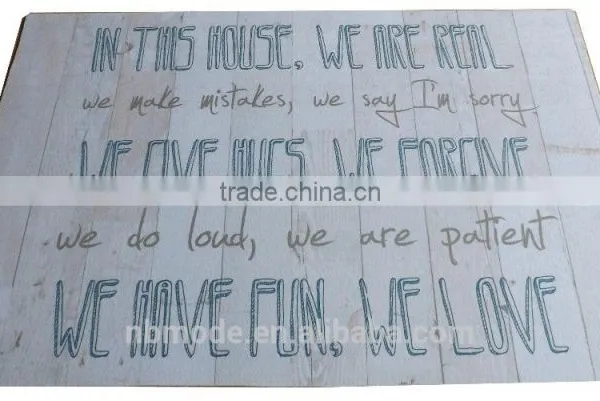 IN THIS HOUSE, WE ARE REAL
we make mistakes, we say I'm sorry
WE GIVE HUGS, WE FORGIVE
trade.china.cn
we do loud, we are patient
WE HAVE FUN, WE LOVE
nbmode.en.alibaba.com